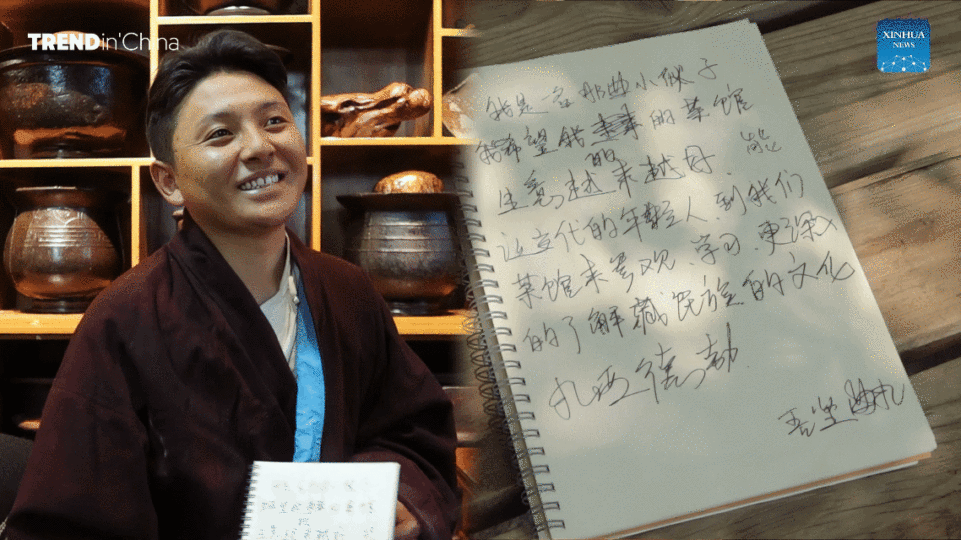 TREND in'China
XINHUA
NEWS
我是一名那曲小伙子
我希望我未来的菜馆
生意的越来越好 能
让当代的年轻人到我们
菜馆来参观 学习 更深入
的了解藏民族的文化
扎西德勒